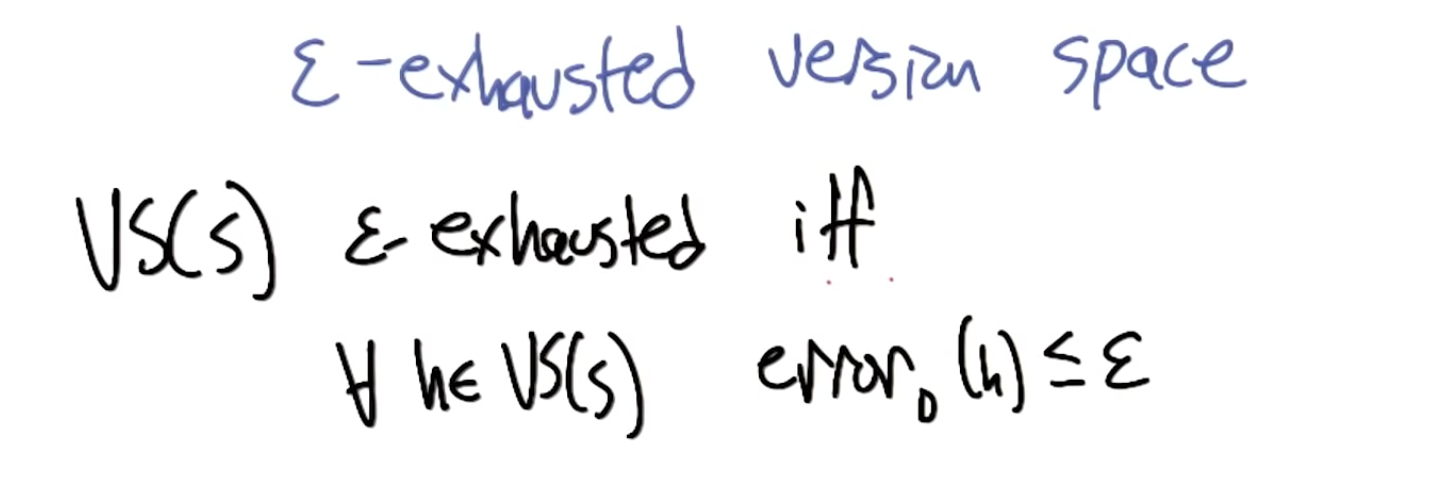 ε-exhausted version space
VS(s) ε-exhausted iff
∀ h∈ VS(s) error_D (h) ≤ ε